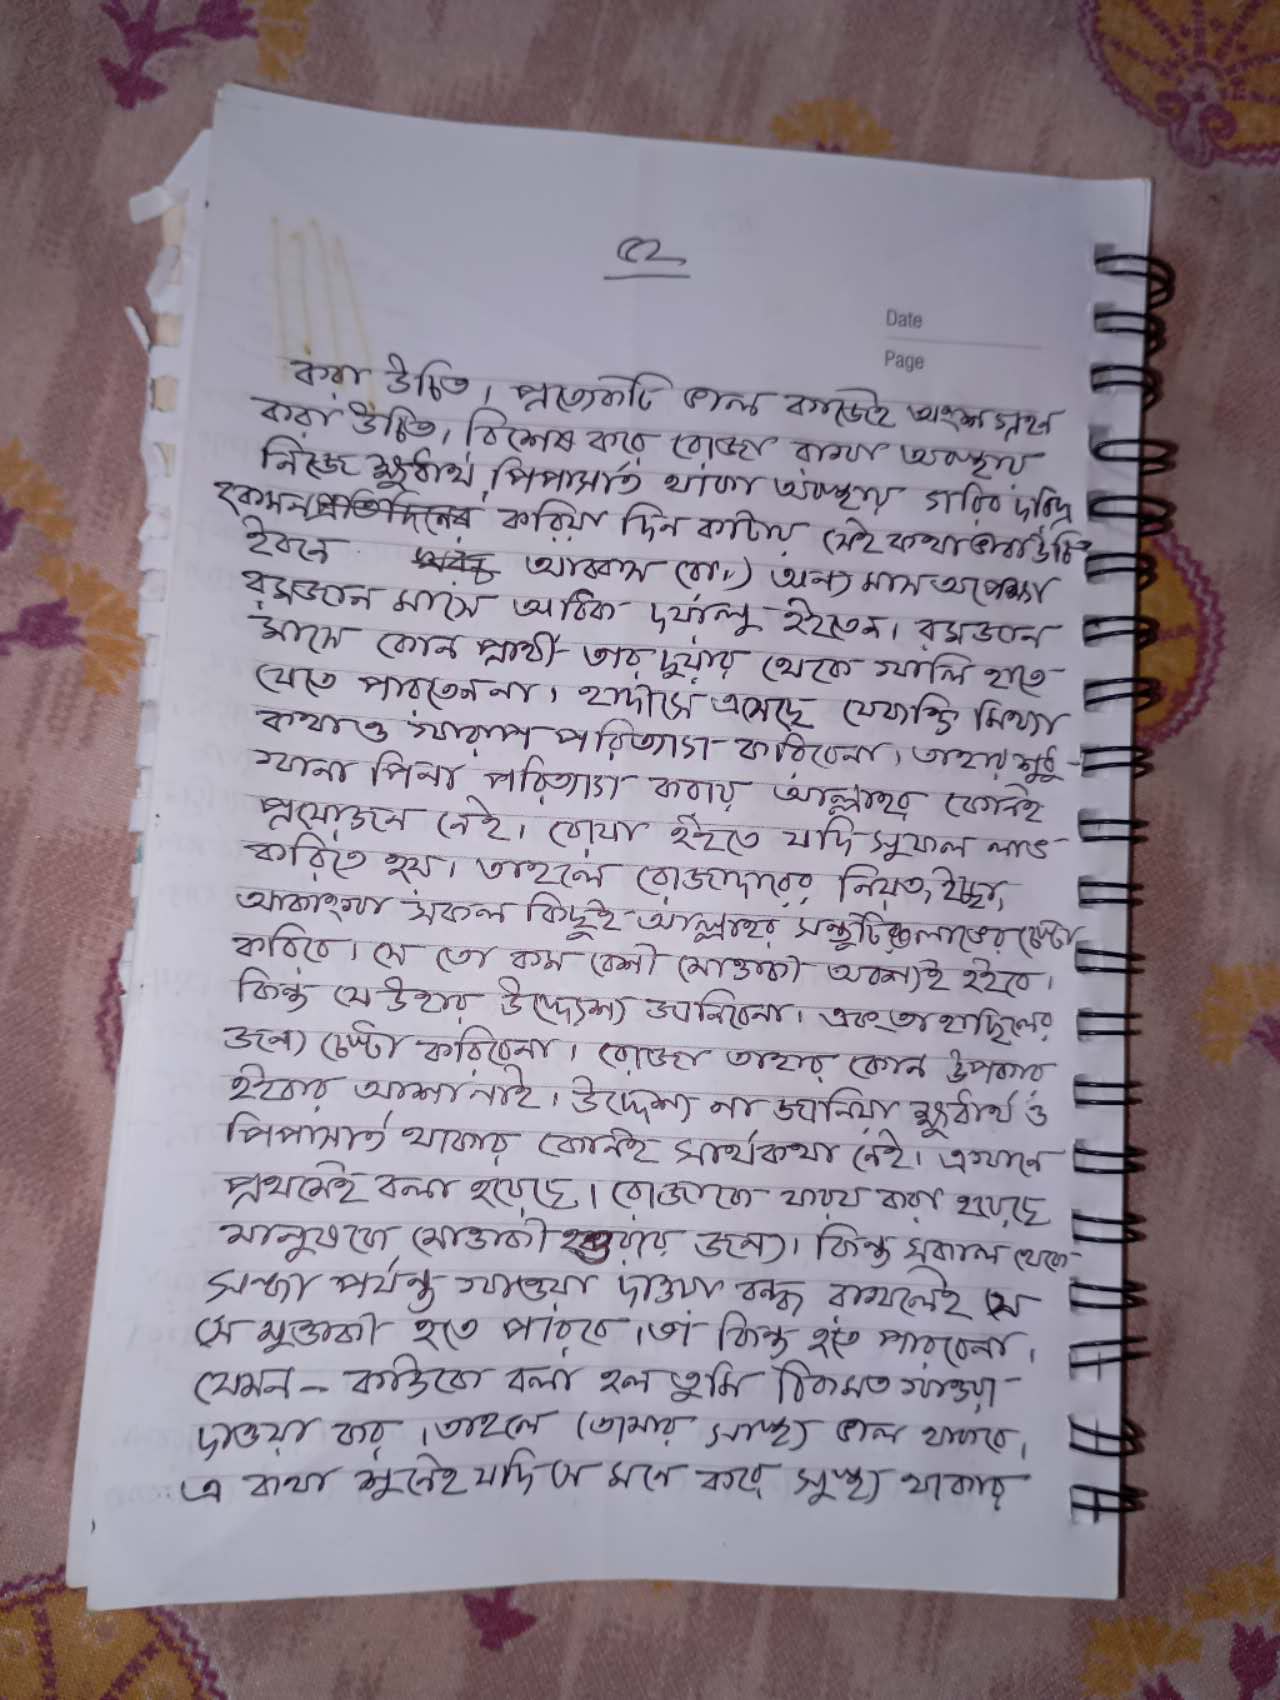 ৫২
Date
Page
করা উচিত। প্রত্যেকটি ভাল কাজেই অংশ গ্রহন
করা উচিত। বিশেষ করে রোজা রাখা অবস্থায়
নিজে ক্ষুধার্থ পিপাসার্ত থাকা অবস্থায় গরিব দরিদ্র
কেমন প্রতিদিনের করিয়া দিন কাটায় সেই কথা ভাবা উচিৎ
ইবনে আব্বাস (রা.) অন্য মাস অপেক্ষা
রমজান মাসে অধিক দয়ালু হইতেন। রমজান
মাসে কোন প্রার্থী তার দুয়ার থেকে খালি হাতে
যেতে পারতেন না। হাদীসে এসেছে যেব্যক্তি মিথ্যা
কথা ও খারাপ পরিত্যাগ করিবেনা। তাহার শুধু
খানা পিনা পরিত্যাগ করায় আল্লাহর কোনই
প্রয়োজন নেই। রোযা হইতে যদি সুফল লাভ
করিতে হয়। তাহলে রোজাদারের নিয়ত, ইচ্ছা,
আকাংখা সকল কিছুই আল্লাহর সন্তুটি লাভের চেষ্টা
করিবে। সে তো কম বেশী মোত্তাকী অবশ্যই হইবে।
কিন্তু যে উহার উদ্দ্যেশ্য জানিবেনা। এবং তা হাছিলের
জন্য চেষ্টা করিবেনা। রোজা তাহার কোন উপকার
হইবার আশা নাই। উদ্দেশ্য না জানিয়া ক্ষুধার্থ ও
পিপাসার্ত থাকার কোনই সার্থকথা নেই। এখানে
প্রথমেই বলা হয়েছে। রোজাকে ফরয করা হয়েছে
মানুষকে মোত্তাকী হওয়ার জন্য। কিন্তু সকাল থেকে
সন্ধা পর্যন্ত খাওয়া দাওয়া বন্ধ রাখলেই সে
সে মুত্তাকী হতে পারিবে। তা কিন্তু হতে পারবেনা।
যেমন – কাউকে বলা হল তুমি ঠিকমত খাওয়া
দাওয়া কর। তাহলে তোমার সাস্থ্য ভাল থাকবে।
এ কথা শুনেই যদি সে মনে করে সুস্থ্য থাকার